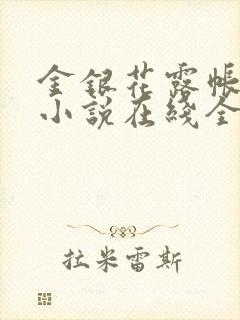 金银花露帐
小说在线全
拉米雷斯